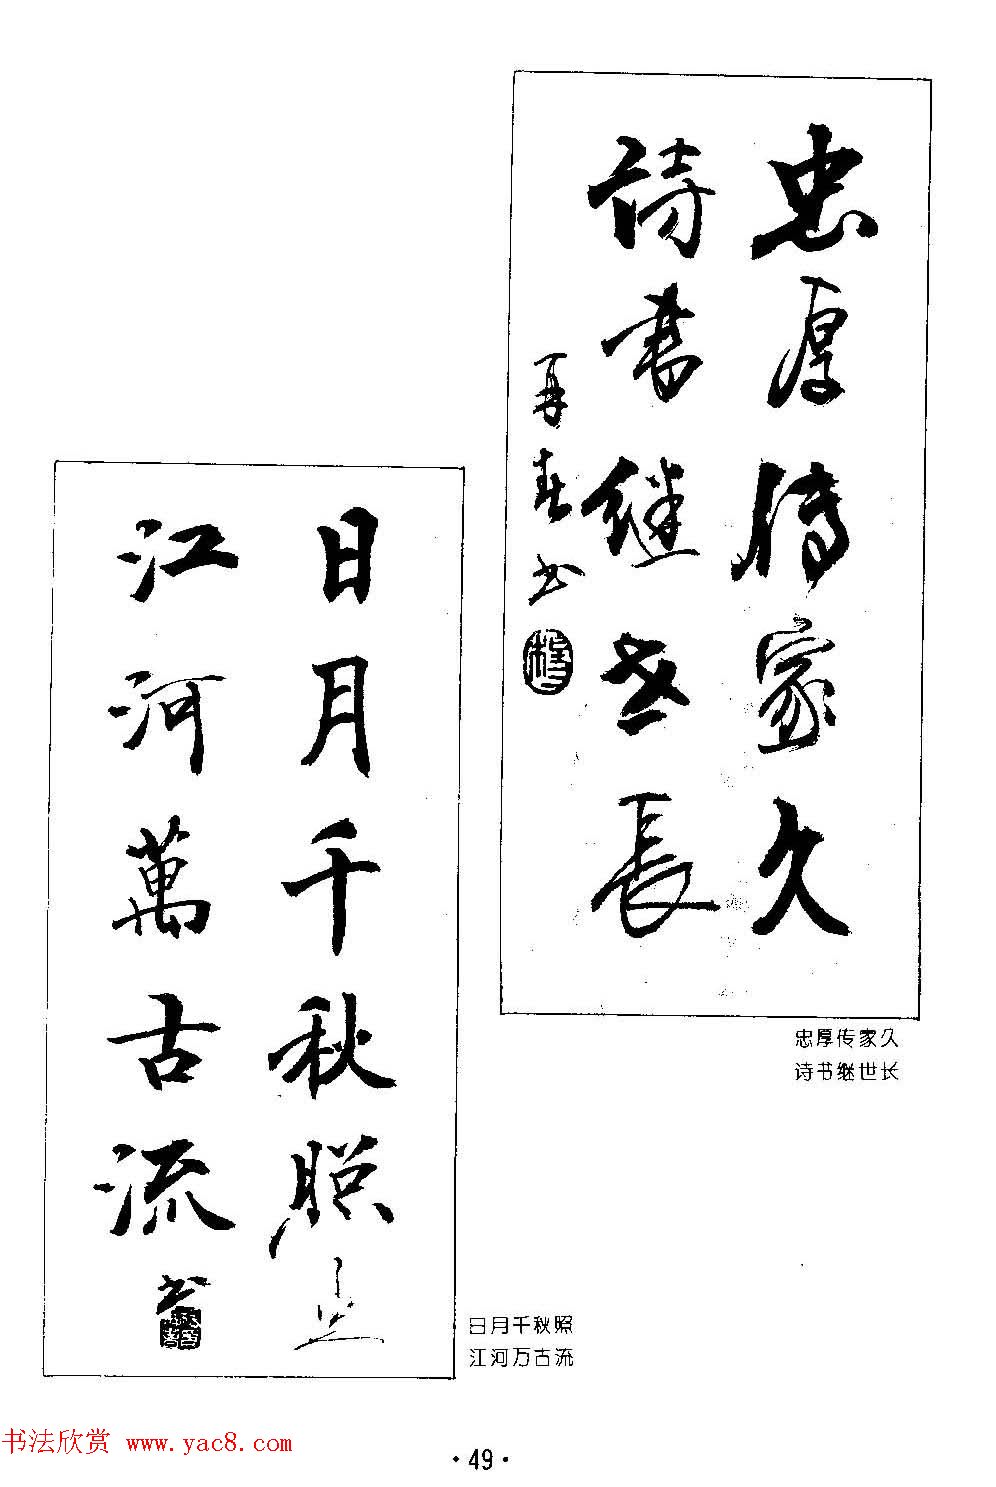 忠厚傳家久
詩書继世長
书
忠厚传家久
诗书继世长
日月千秋照
江河萬古流
书
日月千秋照
江河万古流
书法欣赏 www.yac8.com
·49·